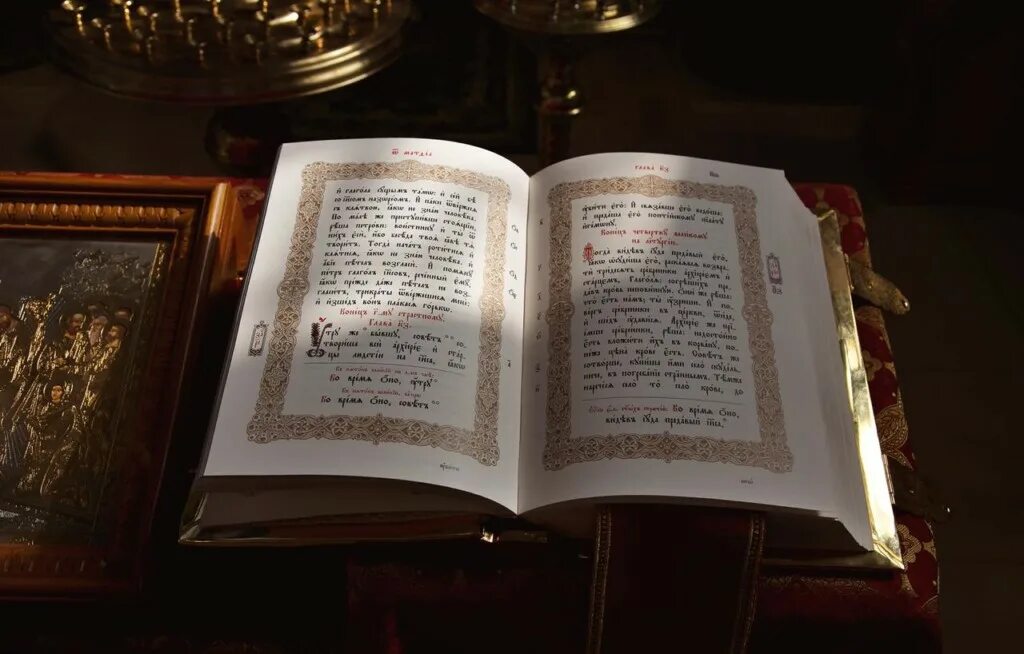 Ѿ матѳеа
и҆ глаго́ла сꙋ́щымъ та́мѡ: и҆ се́й бѣ̀
со і҆и҃сомъ назѡре́омъ. И҆ па́ки ѿве́ржесѧ
съ клѧ́твою, ꙗ҆́кѡ не зна́ю человѣ́ка.
По ма́лѣ же пристꙋпи́вше стоѧ́щїи,
рѣ́ша петро́ви: вои́стиннꙋ и҆ ты̀ ѿ
ни́хъ є҆сѝ, и҆́бо бесѣ́да твоѧ̀ ꙗ҆́вѣ тѧ̀
твори́тъ. Тогда̀ нача́тъ роти́тисѧ и҆
клѧ́тисѧ, ꙗ҆́кѡ не зна́ю человѣ́ка. и҆
а҆́бїе пѣ́тель возгласѝ. И҆ помѧнꙋ̀
пе́тръ глаго́лъ і҆и҃совъ, рече́нный є҆мꙋ̀,
ꙗ҆́кѡ пре́жде да́же пѣ́тель не воз
гласи́тъ, трикра́ты ѿве́ржешисѧ менє̀:
и҆ и҆зше́дъ во́нъ пла́касѧ го́рькѡ.
Коне́цъ є҆́ѵⷢ҇лїю стра́стномꙋ.
Глава̀ к҃з.
Оу҆́трꙋ же бы́вшꙋ, совѣ́тъ со
твори́ша всѝ а҆рхїере́є и҆ ста́р
цы людсті́и на і҆и҃са, ꙗ҆́кѡ
Во вре́мѧ ѻ҆́но, оу҆́трꙋ
Во вре́мѧ ѻ҆́но, совѣ́тъ
Глава̀ к҃з
оу҆би́ти є҆го̀: И҆ свѧза́вше є҆го̀ ведо́ша:
и҆ преда́ша є҆го̀ понті́йскомꙋ пїла́тꙋ
и҆ге́мѡнꙋ.
Коне́цъ четверткꙋ̀ вели́комꙋ
на літꙋргі́и.
Тогда̀ ви́дѣвъ і҆ꙋ́да преда́вый є҆го̀,
ꙗ҆́кѡ ѡ҆сꙋди́ша є҆го̀, раска́ѧвсѧ возвра
тѝ три́десѧть сре́бреники а҆рхїере́ємъ и҆
ста́рцємъ, Глаго́лѧ: согрѣши́хъ пре
да́въ кро́вь непови́ннꙋю. Ѻ҆ни́ же рѣ́ша:
что̀ є҆́сть на́мъ; ты̀ оу҆́зриши. И҆ по
ве́ргъ сре́бреники въ це́ркви, ѿи́де:
и҆ ше́дъ оу҆дави́сѧ. А҆рхїере́є же прїе́м
ше сре́бреники, рѣ́ша: недосто́йно
є҆́сть вложи́ти и҆̀хъ въ корва́нꙋ, по
не́же цѣна̀ кро́ве є҆́сть. Совѣ́тъ же
сотво́рше, кꙋпи́ша и҆́ми село̀ скꙋде́ль
ничо, въ погреба́нїе стра̑ннымъ. Тѣ́мже
нарече́сѧ село̀ то̀ село̀ кро́ве, до
Во вре́мѧ ѻ҆́но,
ви́дѣвъ і҆ꙋ́да преда́вый і҆и҃са,